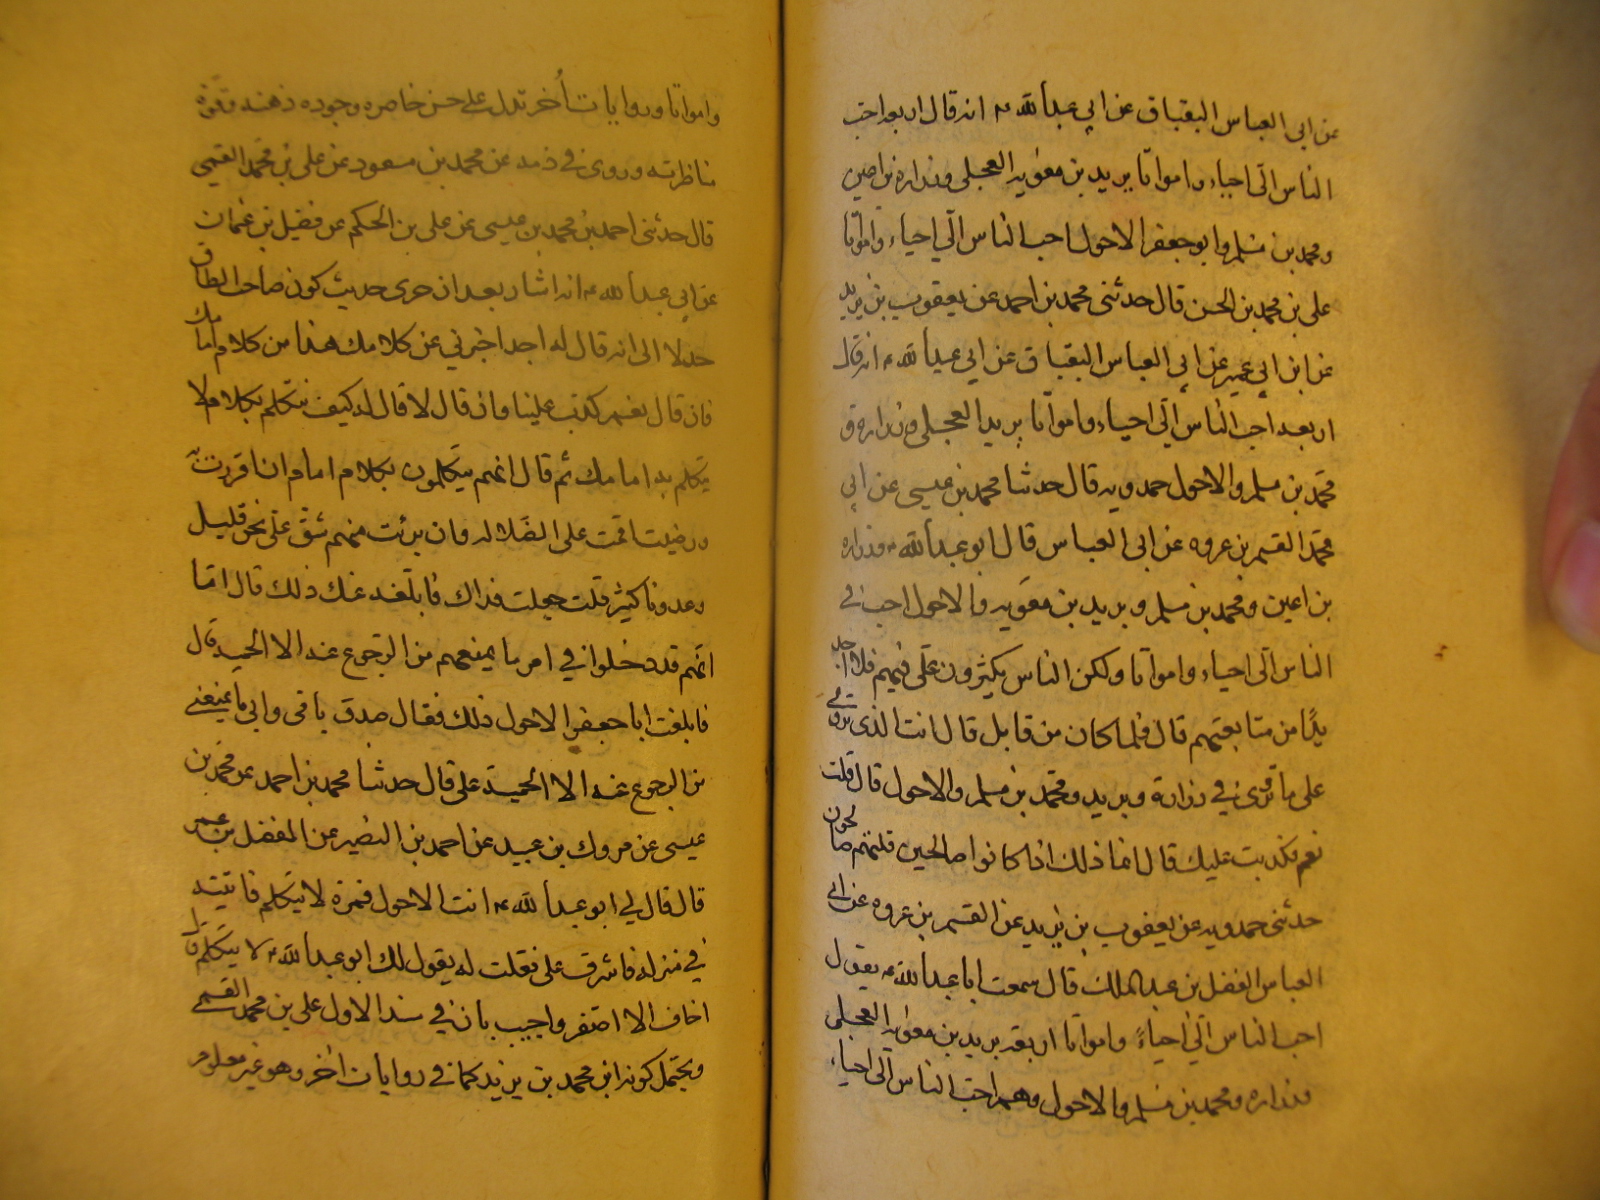 عن ابى العباس البقباق عن ابي عبد الله ع انه قال اربعه احب
الناس الى احياء وامواتا بريد بن معويه العجلى وزراره بن اعين
ومحمد بن مسلم وابو جعفر الاحول احب الناس الي احياء وامواتا
على بن محمد بن الحسن قال حدثنى محمد بن احمد عن يعقوب بن يزيد
عن ابن ابي عمير عن ابي العباس البقباق عن ابي عبد الله ع انه قال
اربعه احب الناس الي احياء وامواتا بريد العجلى وزراره و
محمد بن مسلم والاحول حمدويه قال حدثنا محمد بن عيسى عن ابي
محمد القسم بن عروه عن ابى العباس قال ابو عبد الله ع وزراره
بن اعين ومحمد بن مسلم وبريد بن معويه والاحول احب في
الناس الى احياء وامواتا ولكن الناس يكثرون على فيهم فلا اجد
بدًا من متابعتهم قال فلما كان من قابل قال انت الذى تروي
على ما تروى في زرارة وبريد ومحمد بن مسلم والاحول قال قلت
نعم فكذبت عليك قال انما ذلك اذا كانوا صالحين قلت هم صالحون
حدثنى حمدويه عن يعقوب بن يزيد عن القسم بن عروه عن ابي
العباس الفضل بن عبد الملك قال سمعت ابا عبد الله ع يقول
احب الناس الي احياءً وامواتا اربعه بريد بن معويه العجلى
وزراره ومحمد بن مسلم والاحول وهم احب الناس الى احياء
وامواتا وروايات أخر تدل على حسن خاصره وجوده ذهنه وقوة
مناظرته وروى في ذمه عن محمد بن مسعود عن على بن محمد القمى
قال حدثنى احمد بن محمد بن عيسى عن على بن الحكم عن فضيل بن عثمان
عن ابي عبد الله ع انه اشار بعد ان جرى حديث كون صاحب الطاق
جدلا الى انه قال له اجد اخبرني عن كلامك هذا من كلام امامك
فان قال نعم كذب علينا وان قال لا قال له كيف تتكلم بكلام لا
يتكلم به امامك ثم قال انهم يتكلمون بكلام امام ان اقررت به
ورضيت اقمت على الضلاله وان برئت منهم شق على نحن قليل
وعدونا كثير قلت جعلت فداك فابلغه عنك ذلك قال اما
انهم قد دخلوا في امر ما يمنعهم من الرجوع عنه الا الحميه قال
فابلغت ابا جعفر الاحول ذلك فقال صدق بابى وامي ما يمنعني
من الرجوع عنه الا الحمية على قال حدثنا محمد بن احمد عن محمد بن
عيسى عن مروك بن عبيد عن احمد بن النضير عن المفضل بن عمر
قال قال لي ابو عبد الله ع انت الاحول فمره لا يتكلم فاتيته
في منزله فاشرف على فقلت له يقول لك ابو عبد الله ع لا يتكلم قال
اخاف الا اصبر واجيب بان في سند الاول على بن محمد القسمي
ويحتمل كونه ابن محمد بن يزيد كما في روايات اخر وهو غير معلوم